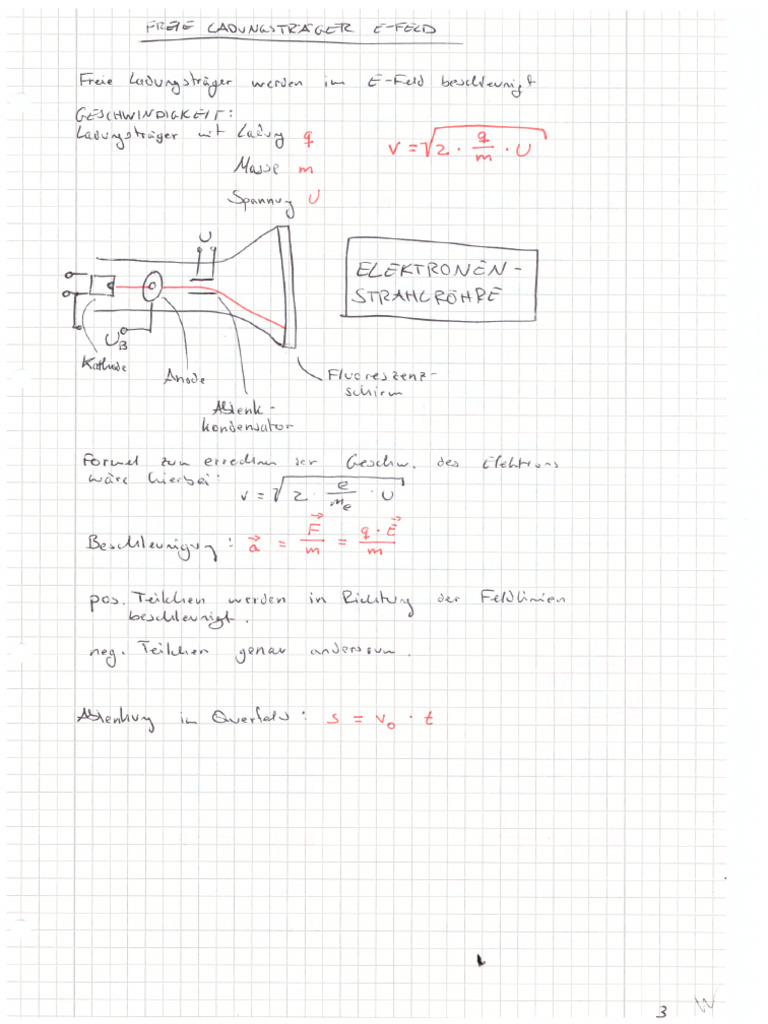 FREIE LADUNGSTRÄGER E-FELD
Freie Ladungsträger werden im E-Feld beschleunigt
GESCHWINDIGKEIT:
Ladungsträger mit Ladung q
v = √(2 · q/m · U)
Masse m
Spannung U
U
ELEKTRONEN-
STRAHLRÖHRE
U_B
Kathode
Anode
Fluoreszenz-
schirm
Ablenk-
kondensator
Formel zum errechnen der Geschw. des Elektrons
wäre hierbei:
v = √(2 · e/m_e · U)
Beschleunigung: a⃗ = F⃗/m = q · E⃗/m
pos. Teilchen werden in Richtung der Feldlinien
beschleunigt.
neg. Teilchen genau andersrum.
Ablenkung im Querfeld: s = v₀ · t
3